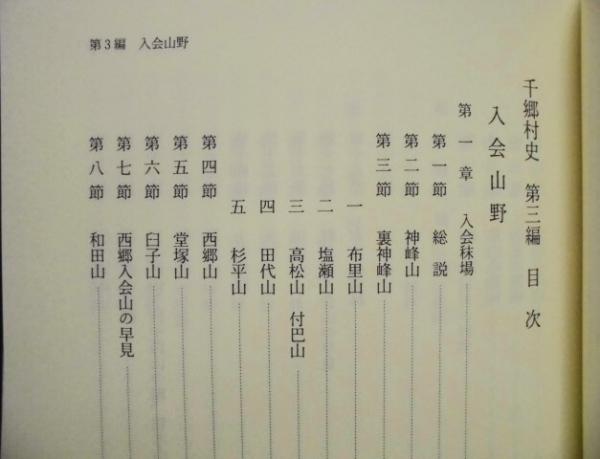 千郷村史 第三編 目次
入会山野
第一章 入会秣場
第一節 総説
第二節 神峰山
第三節 裏神峰山
一 布里山
二 塩瀬山
三 高松山 付巴山
四 田代山
五 杉平山
第四節 西郷山
第五節 堂塚山
第六節 臼子山
第七節 西郷入会山の早見
第八節 和田山
第3編 入会山野